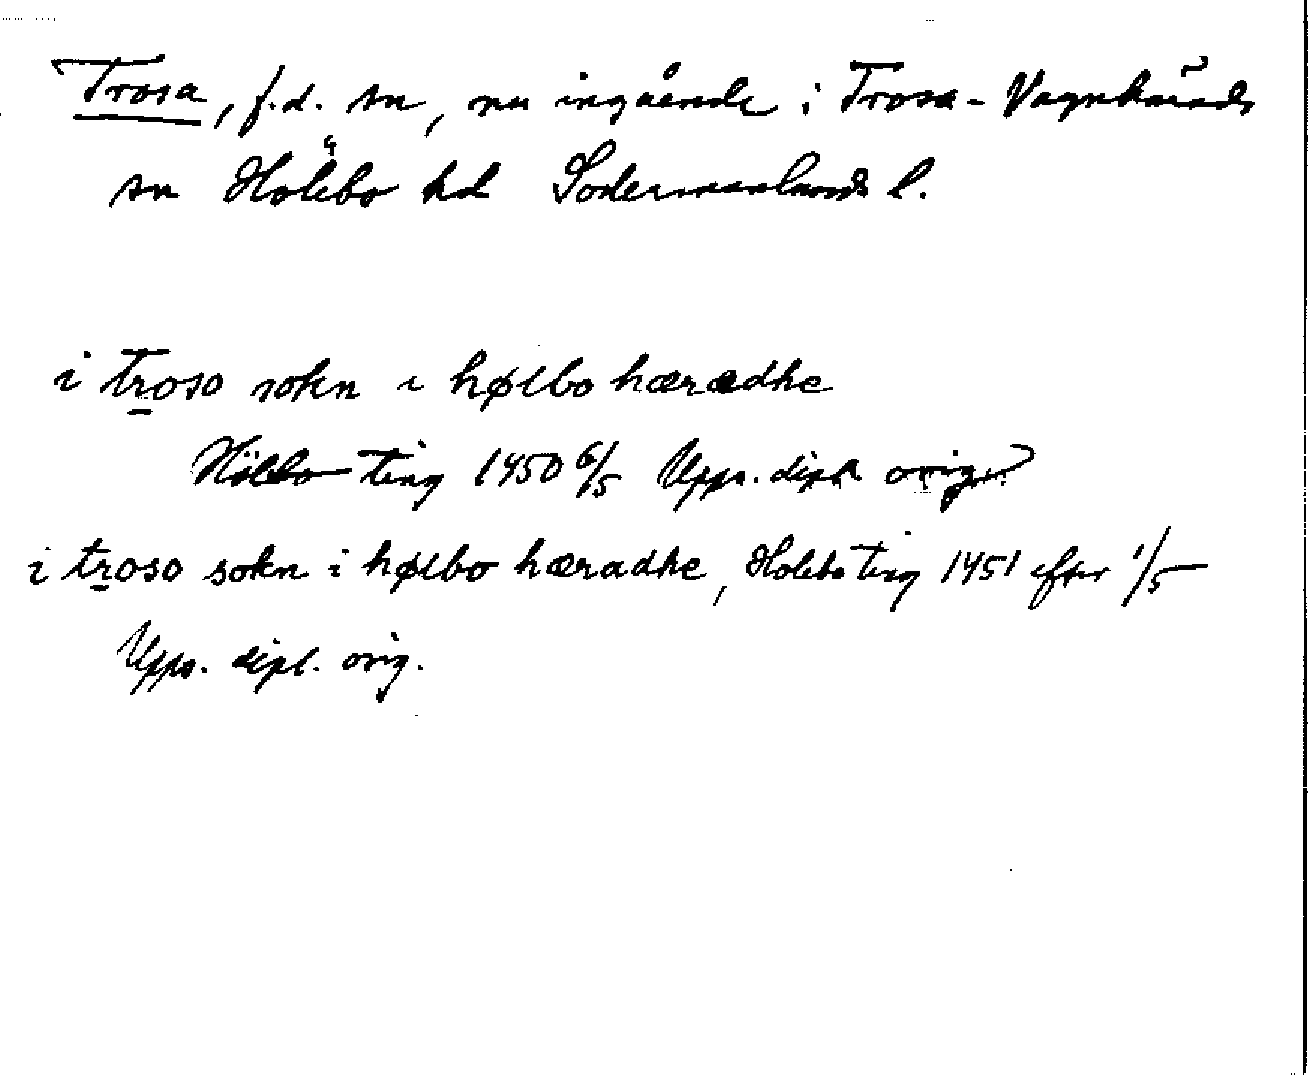 Trosa, f.d. sn, nu ingående i Trosa-Vagnhärads
sn Hölebo hd Södermanlands l.
i troso sokn i hølbo hæradhe
Hölebo ting 1450 6/5 Upps. dipl. orig.
i troso sokn i hølbo hæradhe, Holebo ting 1451 efter 1/5
Upps. dipl. orig.